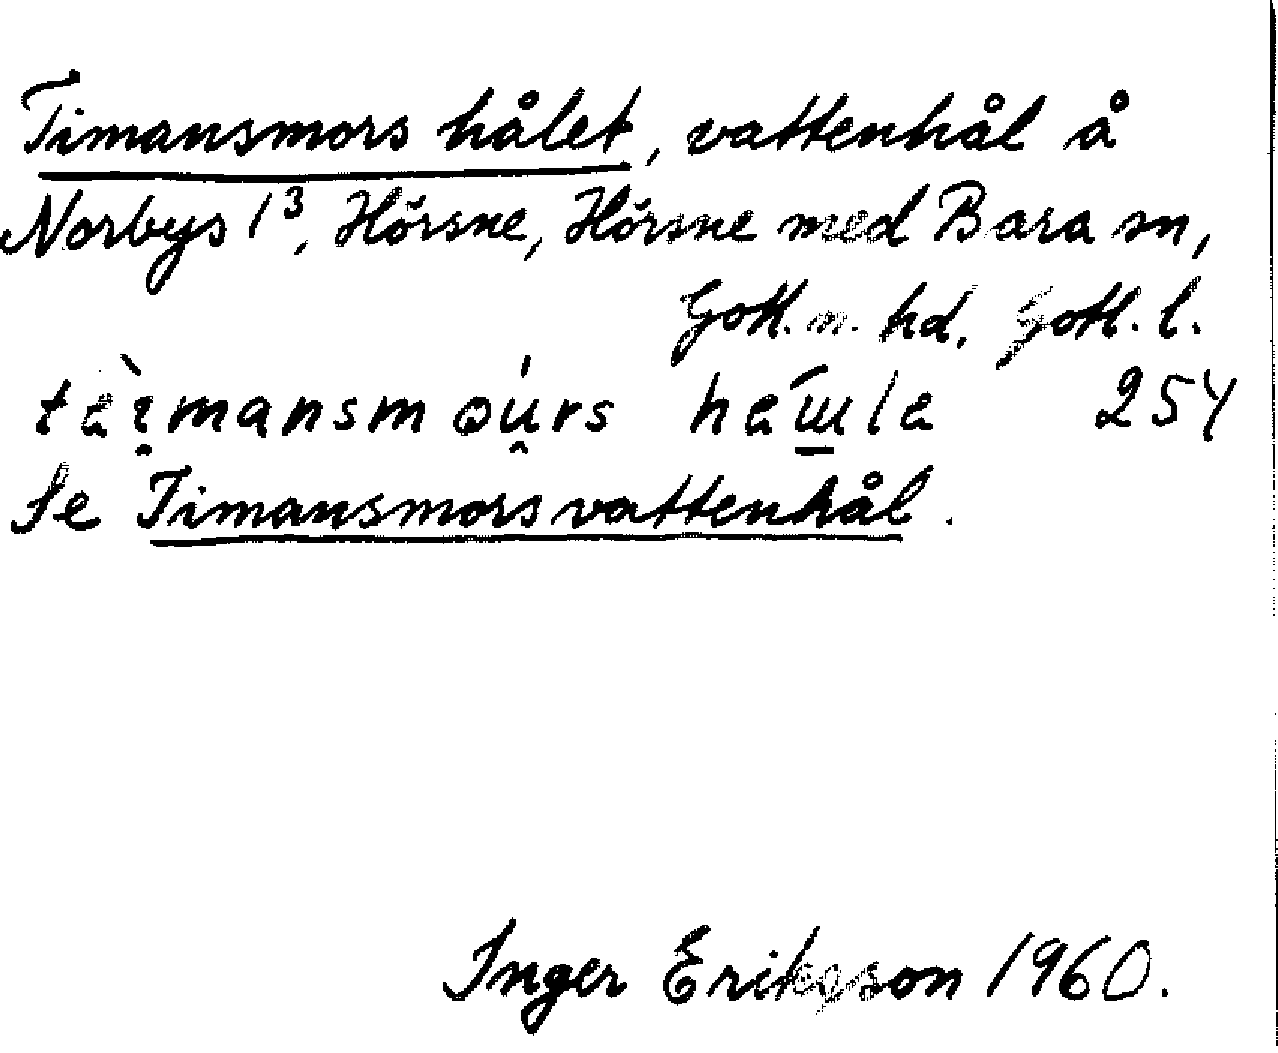 Timansmors hålet, vattenhål å
Norbys 1³, Hörsne, Hörsne med Bara sn,
Gotl. n. hd. Gotl. l.
254
Se Timansmorsvattenhål.
Inger Eriksson 1960.